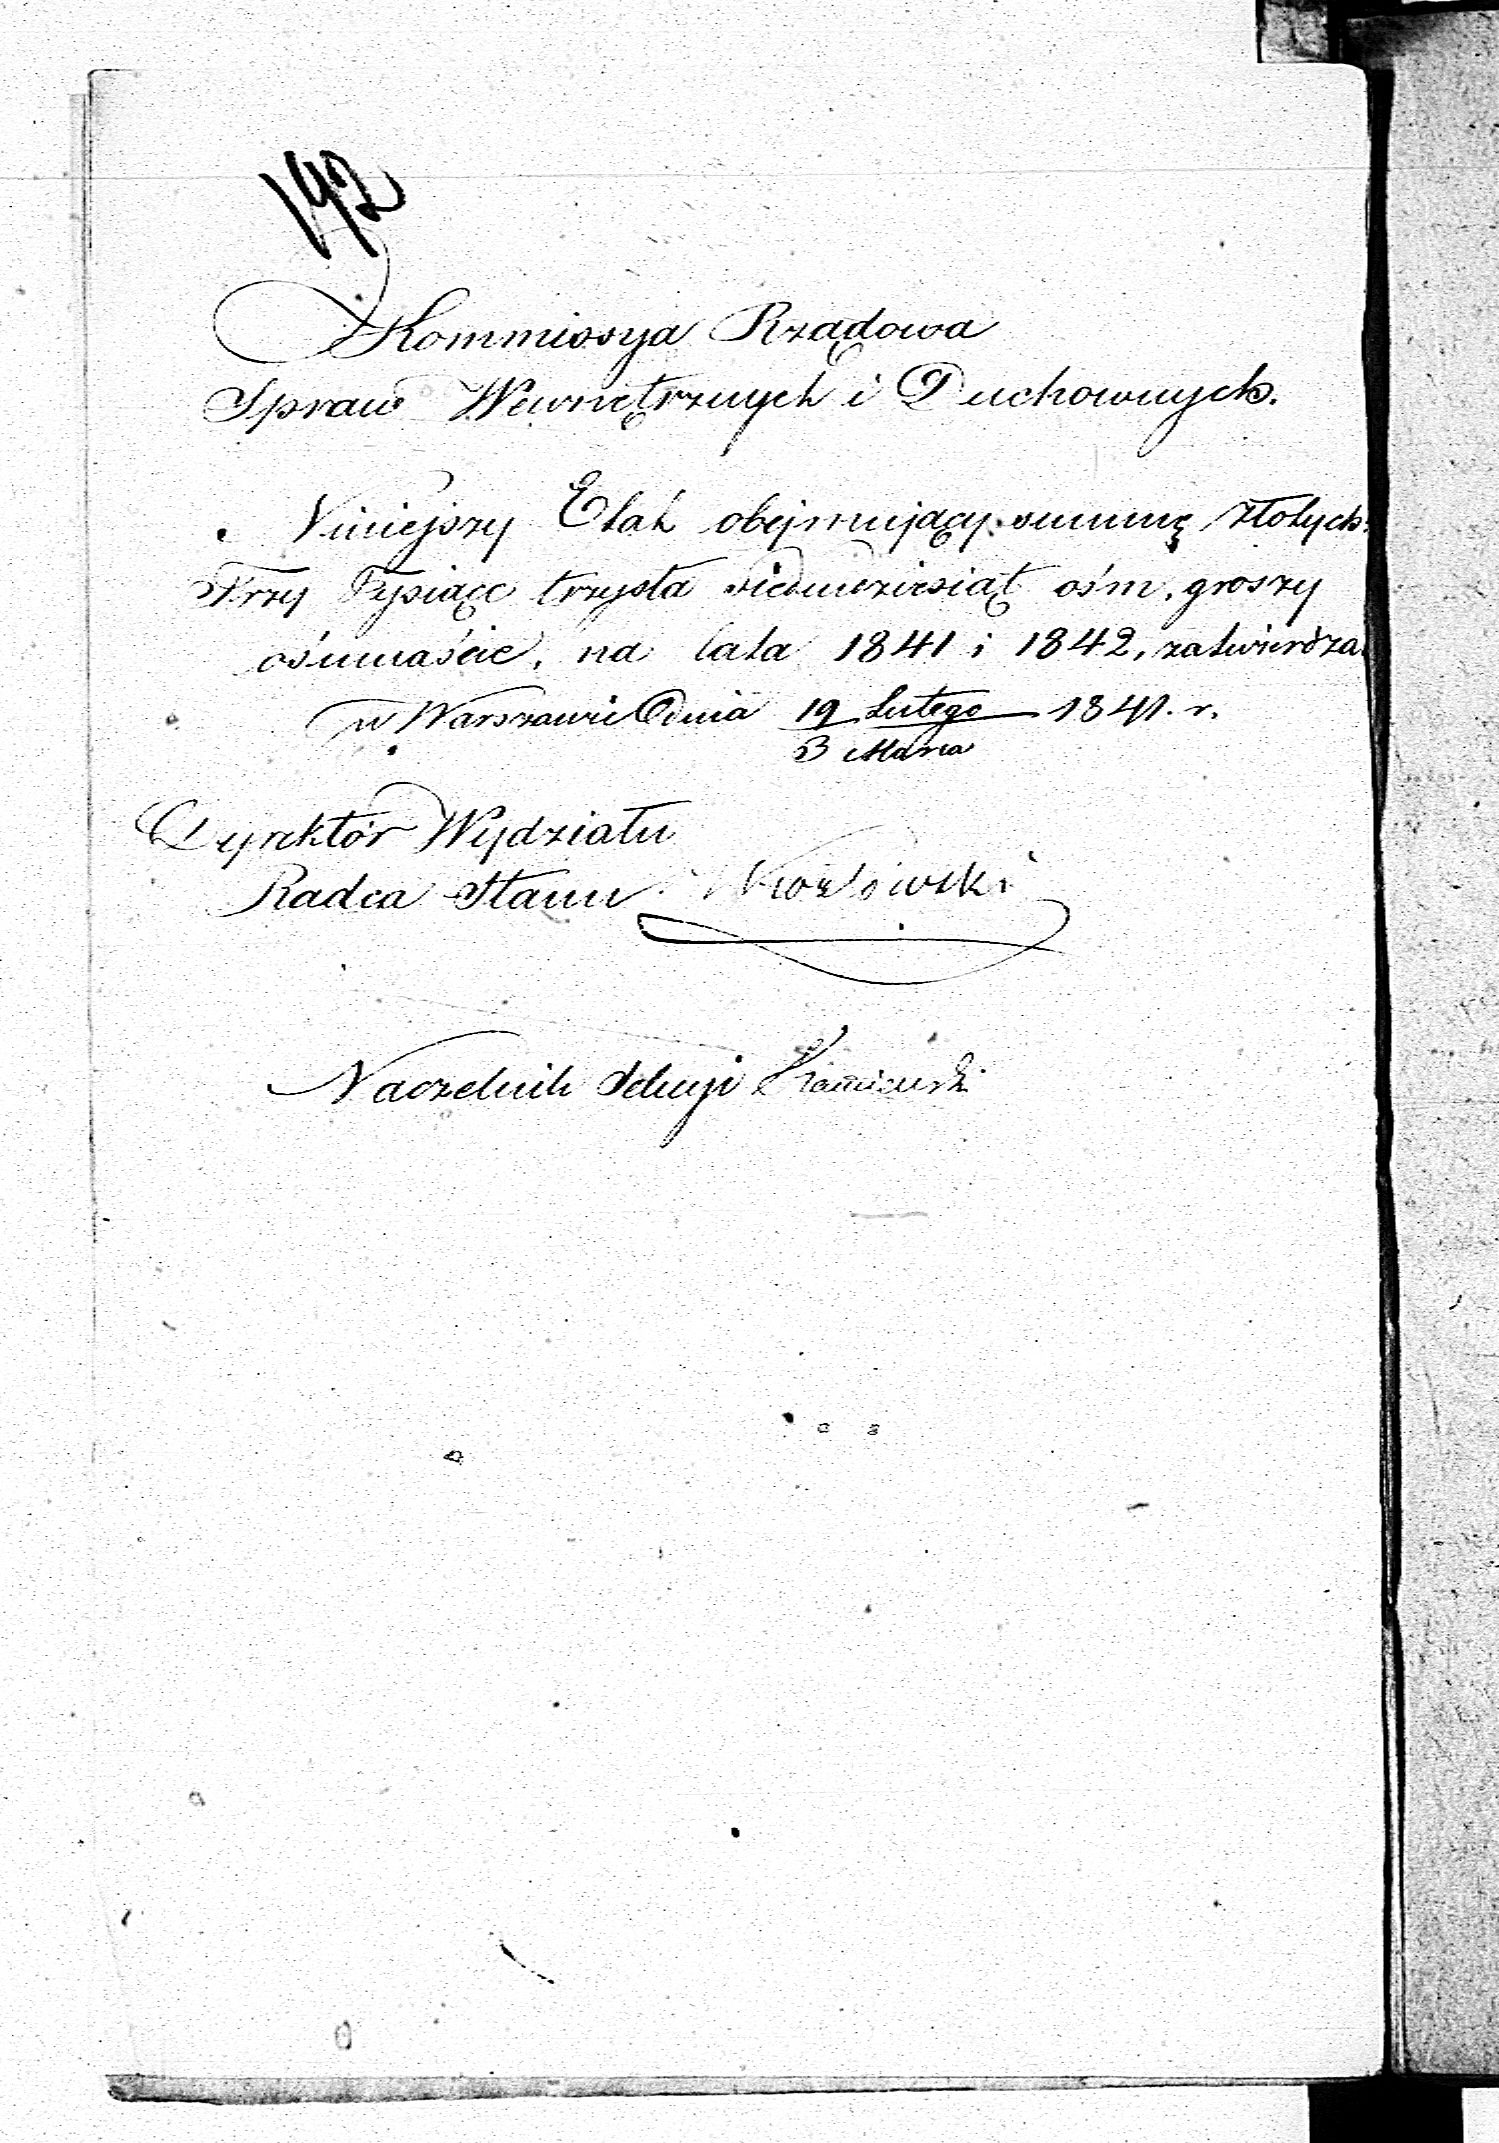 192
Kommissya Rządowa
Spraw Wewnętrznych i Duchownych.
Niniejszy Etat obejmujący summę złotych
Trzy Tysiące trzysta siedmdziesiąt ośm, groszy
ośmnaście, na lata 1841 i 1842, zatwierdza.
w Warszawie dnia 19 Lutego 1841. r.
3 Marca
Dyrektor Wydziału
Radca Stanu
Naczelnik Sekcyi